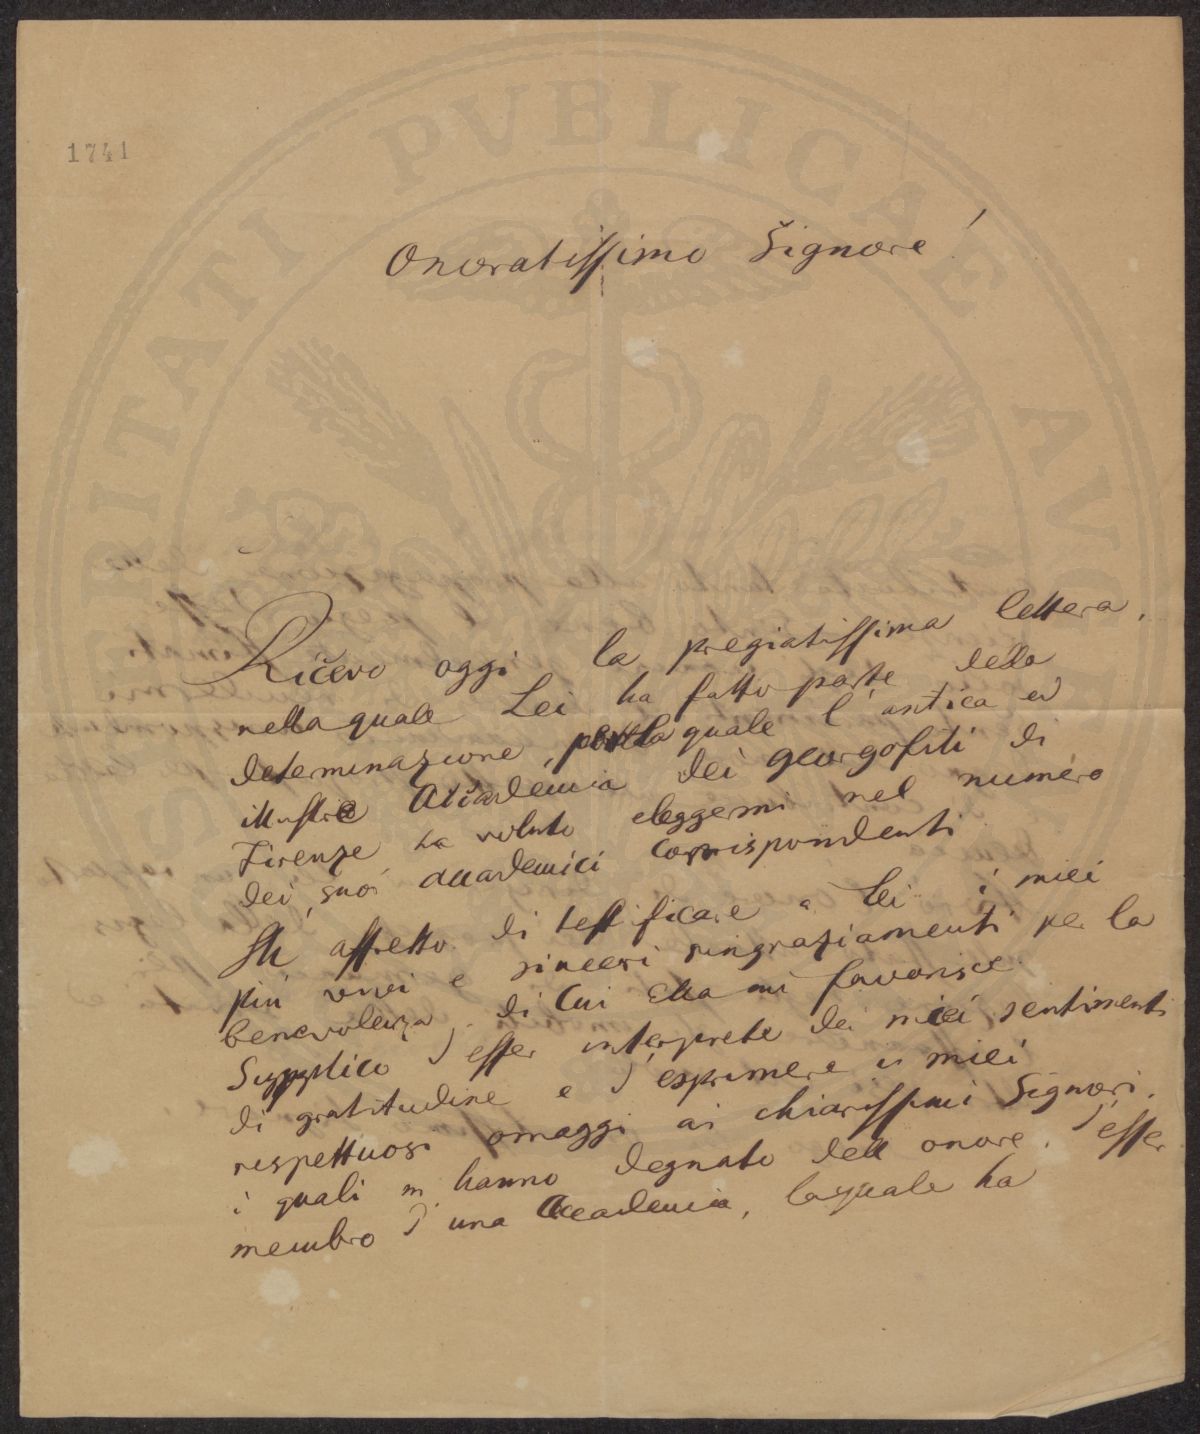 1741
PVBLICAE
Onoratissimo Signore!
Ricevo oggi la pregiatissima lettera,
nella quale Lei ha fatto parte della
determinazione, per la quale l'antica ed
illustre Accademia dei georgofili di
Firenze ha voluto eleggermi nel numero
dei suoi accademici corrispondenti
M' affretto di testificare a Lei i miei
più vivi e sinceri ringraziamenti per la
benevolenza, di cui Ella mi favorisce.
Supplico d' esser interprete dei miei sentimenti
di gratitudine e d' esprimere i miei
rispettuosi omaggi ai chiarissimi Signori,
i quali m' hanno degnato dell onore, d' esser
membro d' una Accademia, la quale ha